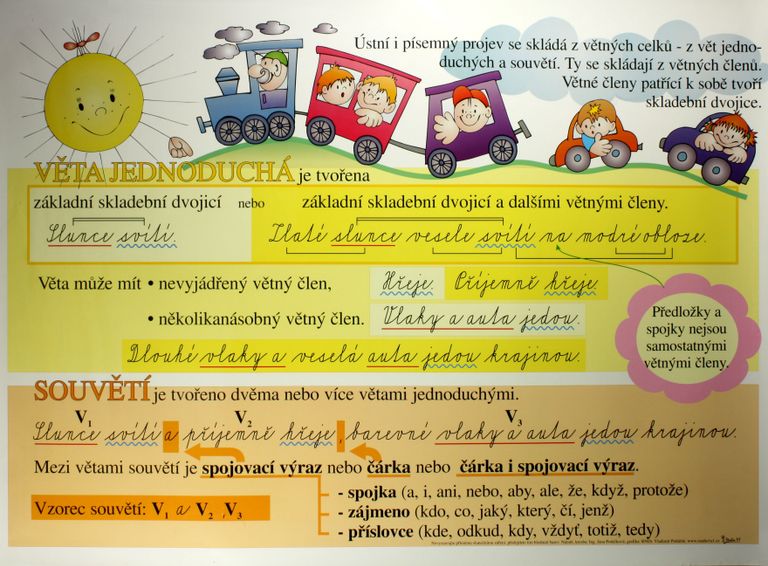 Ústní i písemný projev se skládá z větných celků - z vět jedno-
duchých a souvětí. Ty se skládají z větných členů.
Větné členy patřící k sobě tvoří
skladební dvojice.
VĚTA JEDNODUCHÁ je tvořena
základní skladební dvojicí nebo základní skladební dvojicí a dalšími větnými členy.
Slunce svítí. Zlaté slunce vesele svítí na modré obloze.
Věta může mít • nevyjádřený větný člen, Hřeje. Příjemně hřeje.
• několikanásobný větný člen. Vlaky a auta jedou.
Dlouhé vlaky a veselá auta jedou krajinou.
Předložky a
spojky nejsou
samostatnými
větnými členy.
SOUVĚTÍ je tvořeno dvěma nebo více větami jednoduchými.
V1 V2 V3
Slunce svítí a příjemně hřeje, barevné vlaky a auta jedou krajinou.
Mezi větami souvětí je spojovací výraz nebo čárka nebo čárka i spojovací výraz.
- spojka (a, i, ani, nebo, aby, ale, že, když, protože)
Vzorec souvětí: V1 a V2 , V3
- zájmeno (kdo, co, jaký, který, čí, jenž)
- příslovce (kde, odkud, kdy, vždyť, totiž, tedy)